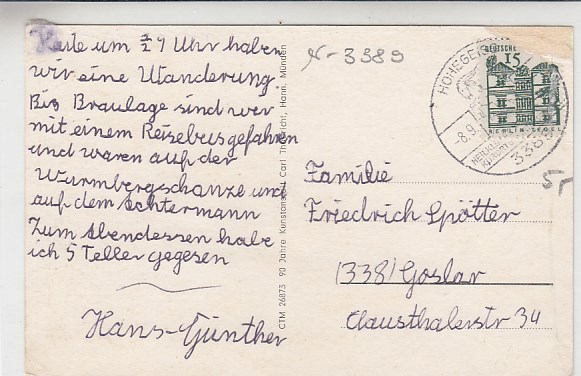 Heute um 1/2 9 Uhr haben
wir eine Wanderung.
Bis Braulage sind wir
mit einem Reisebus gefahren
und waren auf der
Wurmbergschanze und
auf dem Achtermann
Zum Abendessen habe
ich 5 Teller gegesen
Hans-Günther
CTM 26873 90 Jahre Kunstanstalt Carl Thoericht, Hann. Münden
3389
HOHEGEISS
-8.9.
3389
DEUTSCHE
15
BERLIN-TEGEL
Familie
Friedrich Spötter
(338) Goslar
Clausthalerstr 34
5,-